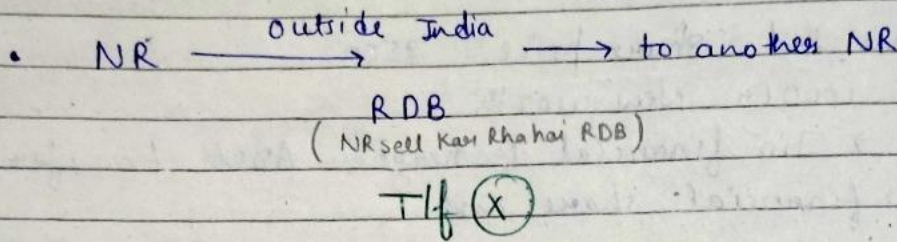 • NR ⟶ outside India ⟶ to another NR
RDB
( NR sell Kar Rha hai RDB )
T/f (X)